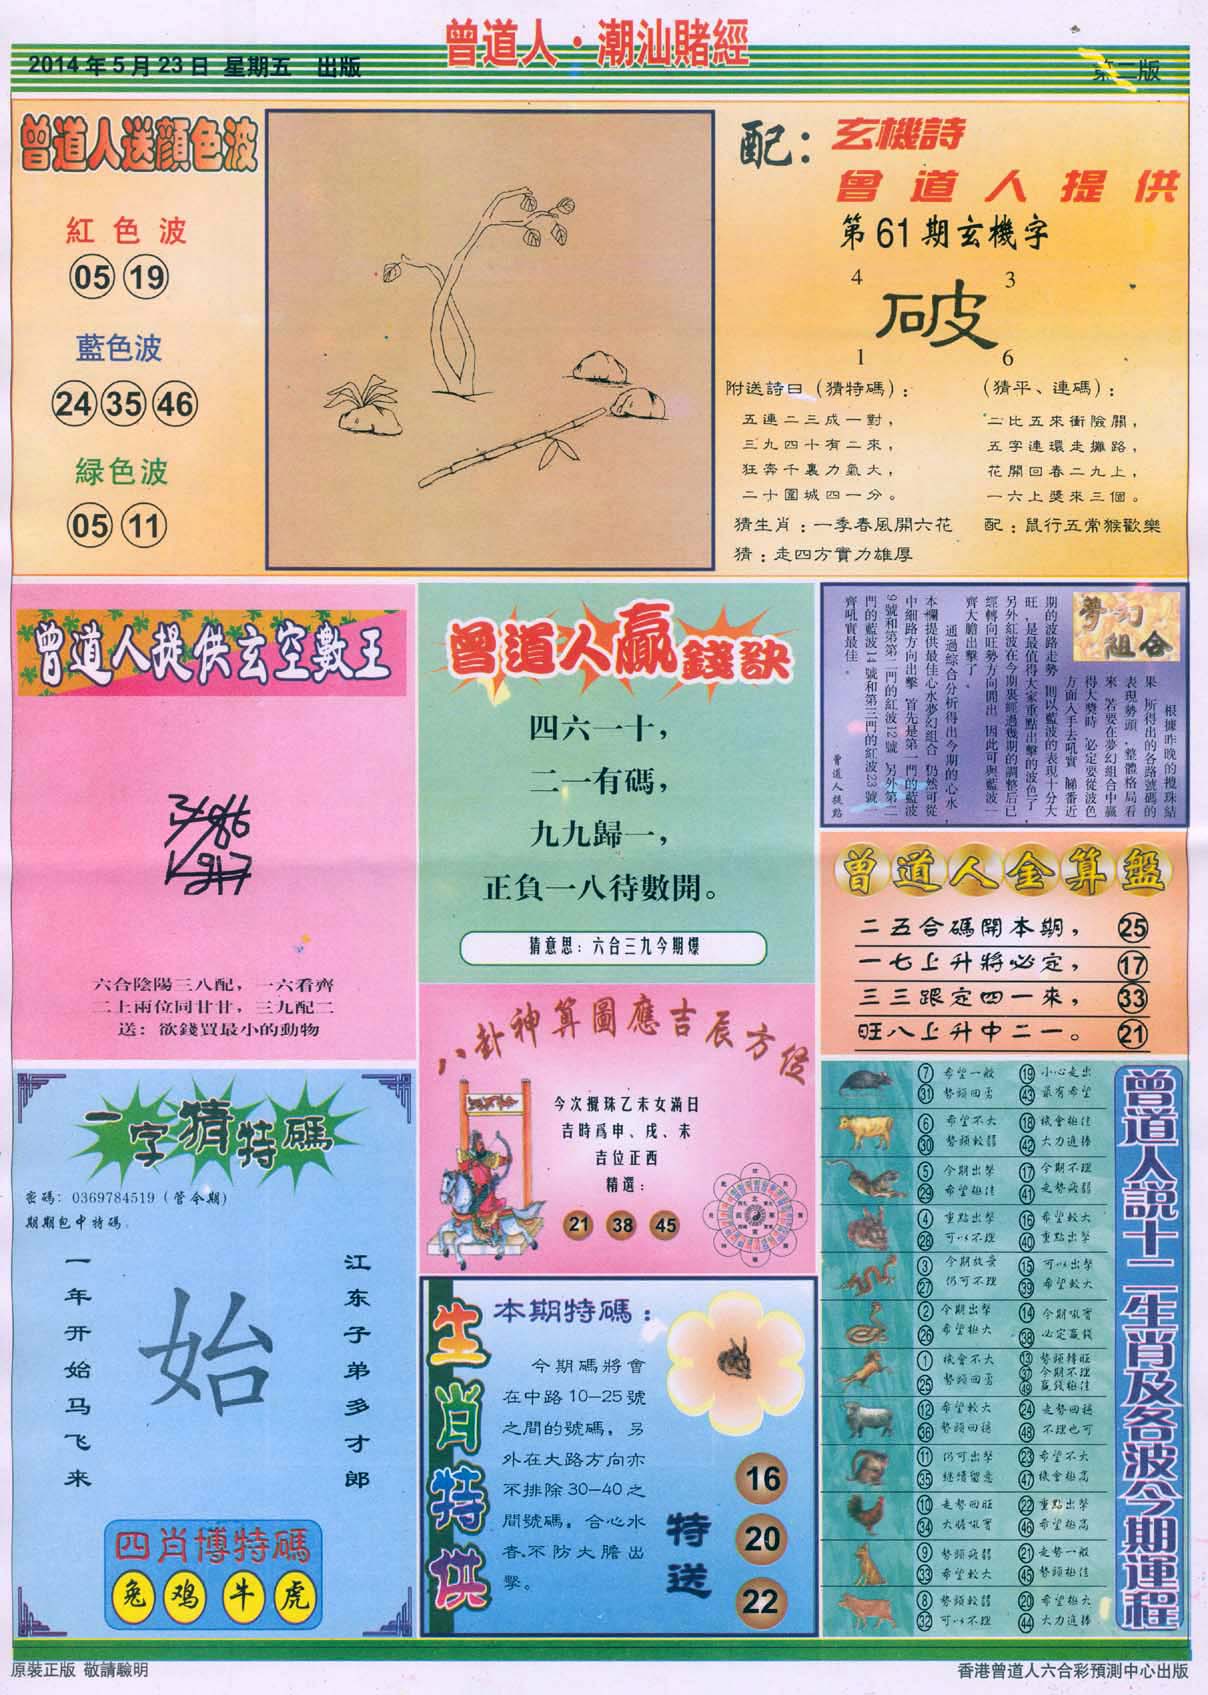 曾道人·潮汕賭經
2014年5月23日 星期五 出版
第二版
曾道人送顏色波
紅色波
05 19
藍色波
24 35 46
緑色波
05 11
配：
玄機詩
曾道人提供
第61期玄機字
4 3
破
1 6
附送詩曰（猜特碼）：
五連二三成一對，
三九四十有二來，
狂奔千裏力氣大，
二十圍城四一分。
（猜平、連碼）：
二比五來衝險關，
五字連環走攤路，
花開回春二九上，
一六上獎來三個。
猜生肖：一季春風開六花
配：鼠行五常猴歡樂
猜：走四方實力雄厚
曾道人提供玄空數王
六合陰陽三八配，一六看齊
二上兩位同廿廿，三九配二
送：欲錢買最小的動物
曾道人贏錢訣
四六一十，
二一有碼，
九九歸一，
正負一八待數開。
猜意思：六合三九今期爆
夢幻組合
根據昨晚的攪珠結
果 所得出的各路號碼的
表現勢頭，整體格局看
來 若要在夢幻組合中贏
得大獎時 必定要從波色
方面入手去吼實 睇番近
期的波路走勢 則以藍波的表現十分大
旺，是最值得大家重點出擊的波色了，
另外紅波在今期裏經過幾期的調整后已
經轉向旺勢方向開出 因此可與藍波一
齊大膽出擊了。
通過綜合分析得出今期的心水，
本欄提供最佳心水夢幻組合 仍然可從
中細路方向出擊 首先是第一門的藍波
9號和第第二門的紅波12號 另外第二
門的藍波14號和第三門的紅波23號一
齊吼實最佳。
曾道人提點
曾道人金算盤
二五合碼開本期， 25
一七上升將必定， 17
三三跟定四一來， 33
旺八上升中二一。 21
八卦神算圖應吉辰方位
今次攪珠乙未女滿日
吉時爲申、戌、未
吉位正西
精選：
21 38 45
一字猜特碼
密碼：0369784519（管今期）
期期包中特碼
一年开始马飞来
始
江东子弟多才郎
四肖博特碼
兔 鸡 牛 虎
生肖特供
本期特碼：
今期碼將會
在中路10—25號
之間的號碼，另
外在大路方向亦
不排除30—40之
間號碼，合心水
者不防大膽出
擊。
特送
16
20
22
曾道人説十二生肖及各波今期運程
7 希望一般 19 小心走出
31 勢頭回勇 43 最有希望
6 希望不大 18 機會極佳
30 勢頭較弱 42 大力追捧
5 今期出擊 17 今期不理
29 希望極佳 41 走勢疲弱
4 重點出擊 16 希望較大
28 可以不理 40 重點出擊
3 今期放棄 15 可以出擊
27 仍可不理 39 希望較大
2 今期出擊 14 今期吼實
26 希望極大 38 必定贏錢
1 機會不大 13 勢頭轉旺
37 今期不理
25 勢頭回勇 49 贏錢極佳
12 希望較大 24 走勢回穩
36 勢頭回穩 48 不理也可
11 仍可出擊 23 希望不大
35 繼續留意 47 機會極高
10 走勢回旺 22 重點出擊
34 大膽吼實 46 希望極高
9 勢頭疲弱 21 走勢一般
33 希望較大 45 勢頭極佳
8 勢頭較弱 20 希望極大
32 可以不理 44 大力追捧
原裝正版 敬請驗明
香港曾道人六合彩預測中心出版